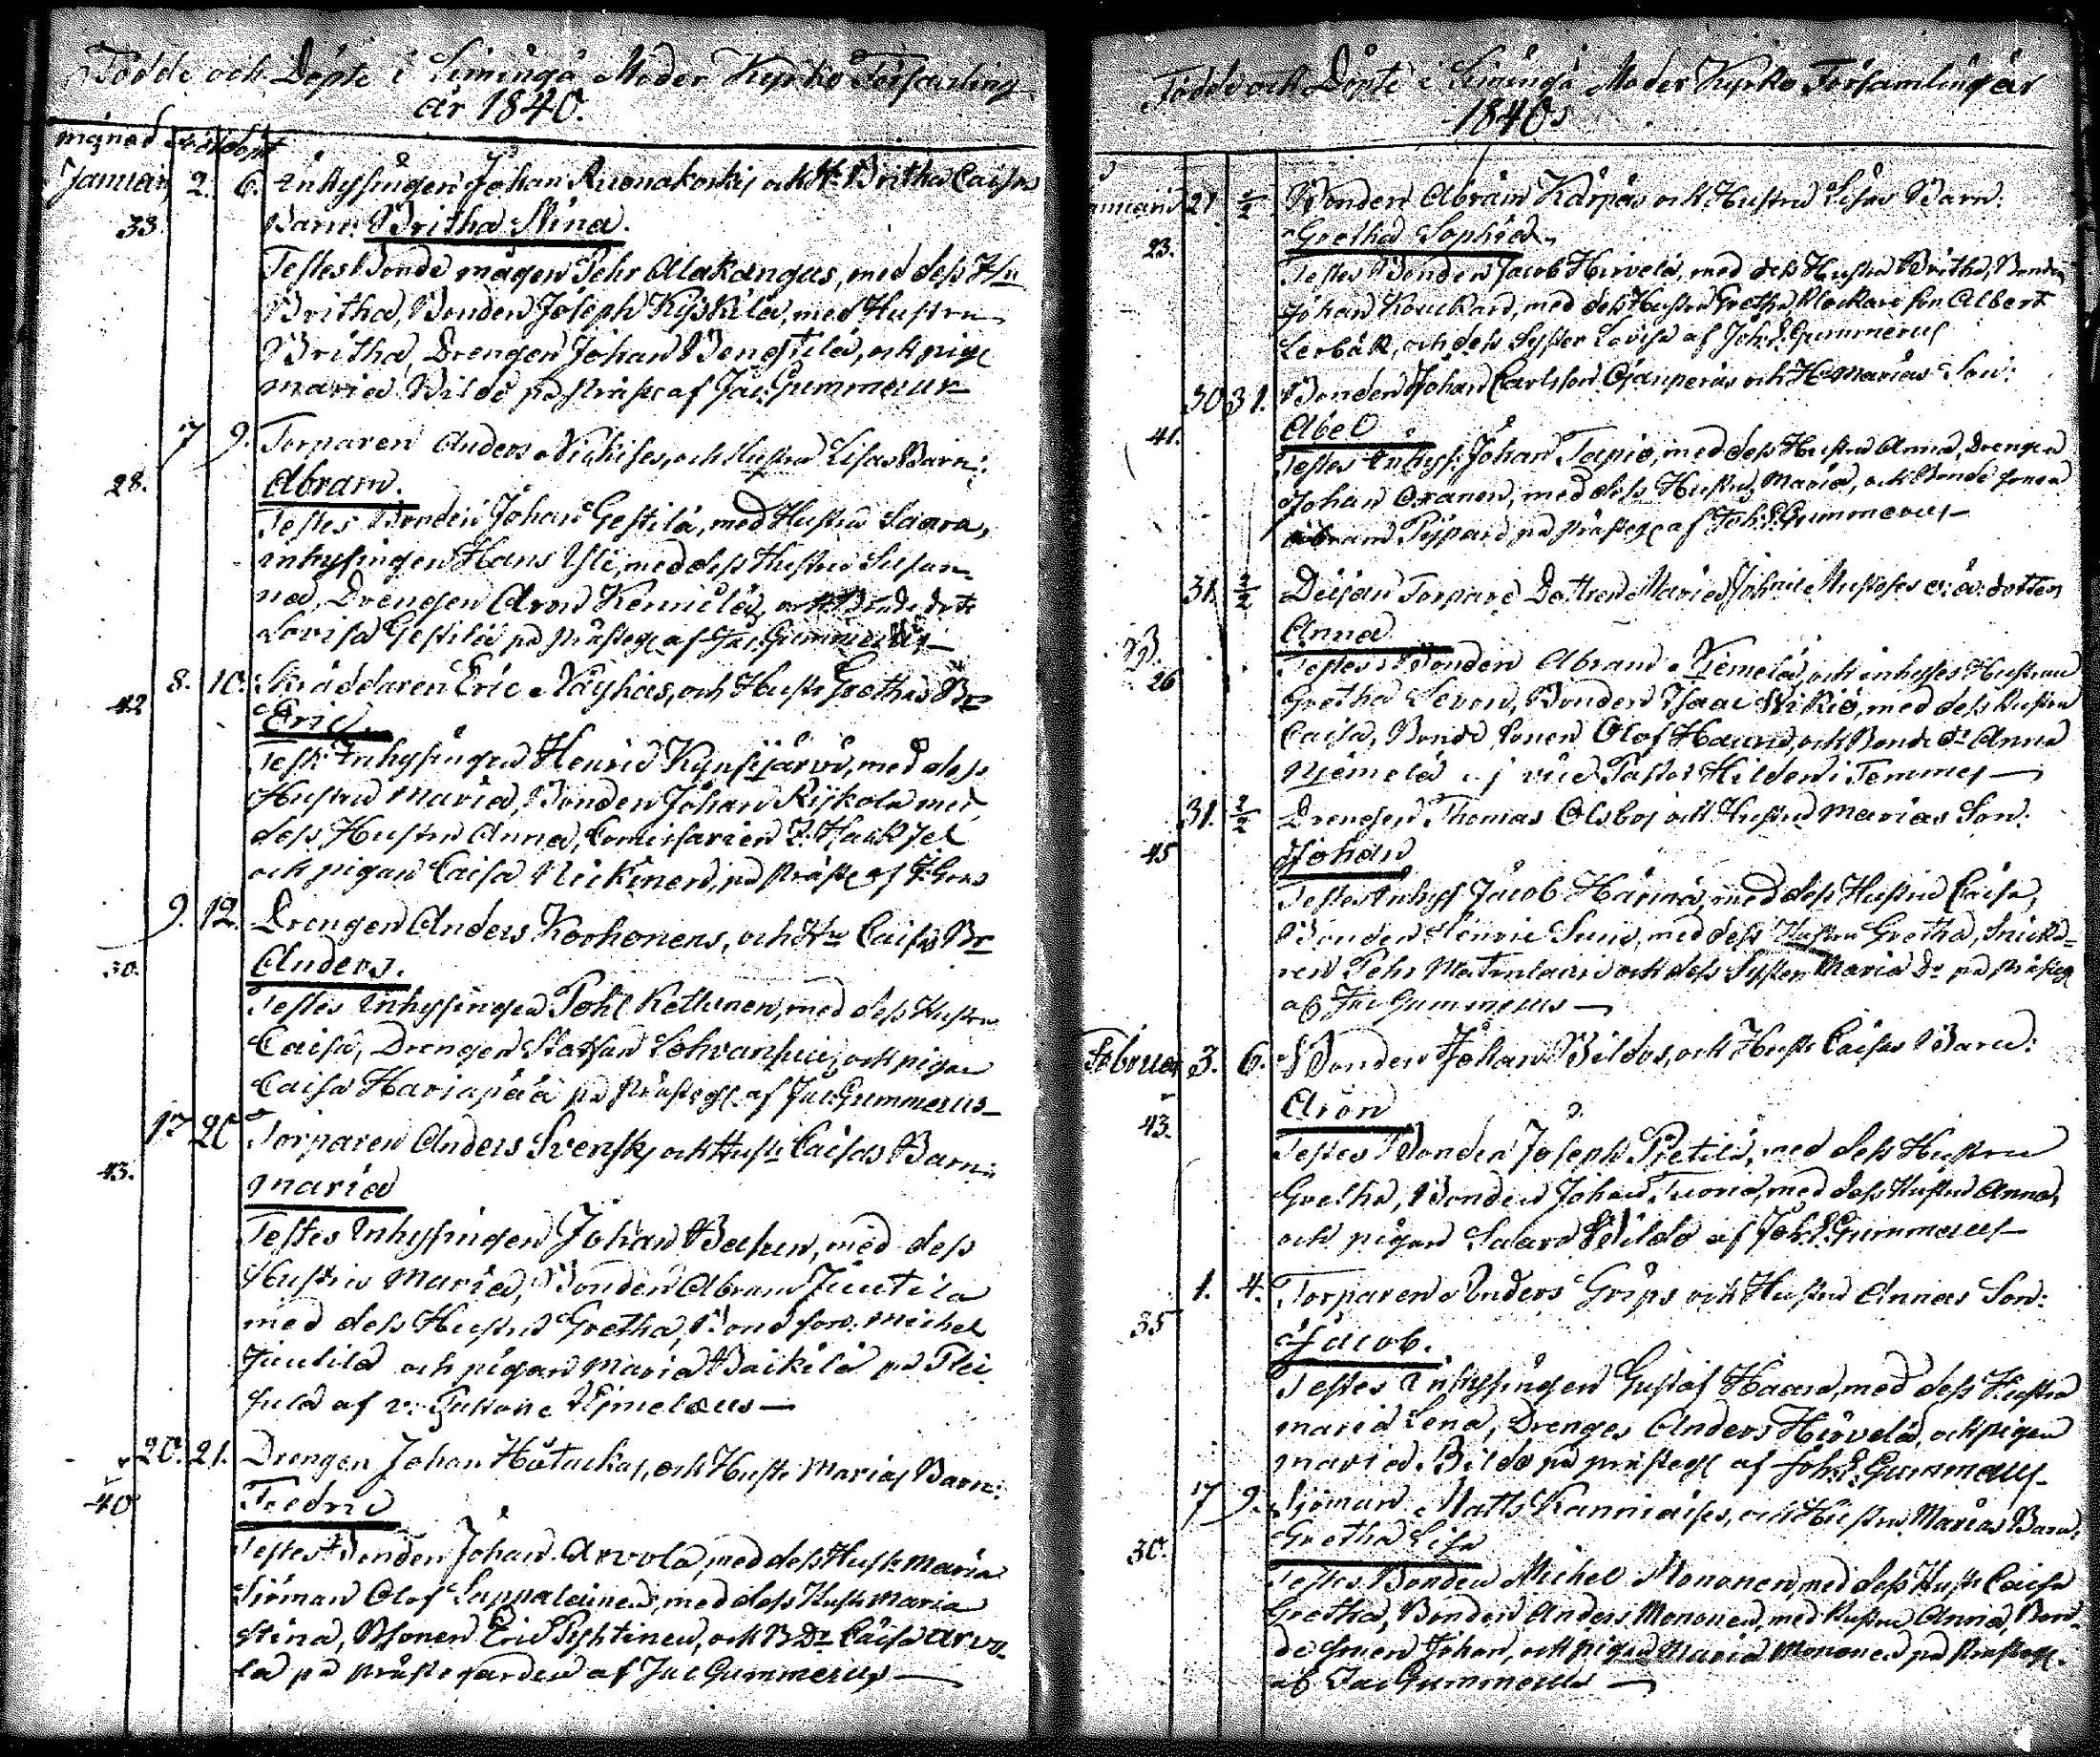 Födde och Döpte i Limingå Moder Kyrko Församling
år 1840.
månad född döpt
Januari 2. 6. Inhysingen Johan Ruonakoskis och H. Britha Caisas
33. Barn: Britha Stina.
Testes Bonde mågen Pehr Alakangas, med dess Hu
Britha, Bonden Joseph Kyskilä, med Hustru
Britha, Drengen Johan Bengtilä, och pig
Maria Bildo på prästg af Jac: Gummerus
7 9. Torparen Anders och Hustru Lisas Barn:
28. Abram.
Testes Bonden Johan Gestilä, med Hustru Saara,
inhysingen Hans Yli, med dess Hustru Susan-
na, Drengen Aron och Bonde dott
Lovisa Gestilä på Prästeg af Jac: Gummerus
8. 10. Skräddaren Eric Näyhäs, och Hustr Grethas Br
42 Eric
Test: Inhysingen Henric Kynsijärvi, med dess
Hustru Maria, Bonden Johan Kyskola med
dess Hustru Anna, Comissarien
och pigan Caisa på Präste af J: Grus
9. 12. Drengen Anders Korhonens, och Hu Caisas Br
30. Anders.
Testes Inhysingen Pohl Kettunen, med dess Hustru
Caisa, Drengen Staffan och pigan
Caisa Hariapää på Prästeg af Jac: Gummerus
17 20 Torparen Anders Svensks och Hust: Caisas Barn:
43. Maria
Testes Inhysingen Johan med dess
Hustru Maria, Bonden Abram Juutila
med dess Hustru Gretha, Bond son: Michel
Juutila och pigan Maria Vaikilä på
af v: Pastorn
20. 21. Drengen Johan Hötackas, och Hustr Marias Barn:
40 Fredric
Testes Bonden Johan Arvola, med dess Hustr Maria
Sjöman Olof Luppalainen, med dess Hustr Maria
Stina, Bsonen Eric och B Dr Caisa Arvo-
la på prästegården af Jac Gummerus
Födde och Döpte i Limingå Moder Kyrko Församling år
1840.
Januari 21 2/2 Bonden Abram Kärpäs och Hustru Lisas Barn:
23. Gretha Sophia
Testes Bonden Jacob Hirvelä, med dess Hustru Britha, Bonden
Johan med dess Hustru Gretha, Klockare son Albert
Lerbäk, och dess Syster Lovisa af Joh: E: Gummerus
30 31. Bonden Johan Carlsson och H Marias Son:
41. Abel
Testes Inhys: Johan Tapio, med dess Hustru Anna, Drengen
Johan Oxanen, med dess Hustru Maria, och Bonde sonen
Abram Pyppare på Prästeg af Joh: E: Gummerus
31. 2/2 Torpare Dottren Maria Johans o: ä: dotter
Anna
26 Testes Bonden Abram Niemelä, och inhyses Hustrun
Gretha Levon, Bonden Isaac med dess Hustru
Caisa, Bonde Sonen Olof Haurus, och Bonde dr Anna
Niemelä vice Pastor Hilden i Temmes
31. 2/2 Drengen Thomas Olsbos och Hustru Marias Son:
45 Johan
Testes Inhys Jacob Härmä, med dess Hustru Caisa,
Bonden Henric med dess Hustru Gretha, Snicka-
ren Pehr Matinlauri och dess Syster Maria Dr på prästeg
af Jac Gummerus
Februari 3. 6. Bonden Johan Bildos, och Hustr Caisas Barn:
43. Aron
Testes Bonden Joseph Pietilä, med dess Hustru
Gretha, Bonden Johan Tuorio, med dess Hustru Anna,
och pigan Saara Bildo af Joh: E: Gummerus
1. 4. Torparen Anders Grips och Hustru Annas Son:
35 Jacob.
Testes Inhysingen Gustaf Haara, med dess Hustru
Maria Lena, Drengen Anders Hirvelä, och pigan
Maria Bildo på prästeg af Joh: E: Gummerus
7 9. Sjöman Matts och Hustru Marias Barn:
30. Gretha Lisa
Testes Bonden Michel Mononen, med dess Hustr Caisa
Gretha, Bonden Anders Mononen, med Hustru Anna, Bon-
de sonen Johan, och pigan Maria Mononen på Prästeg.
af Jac Gummerus